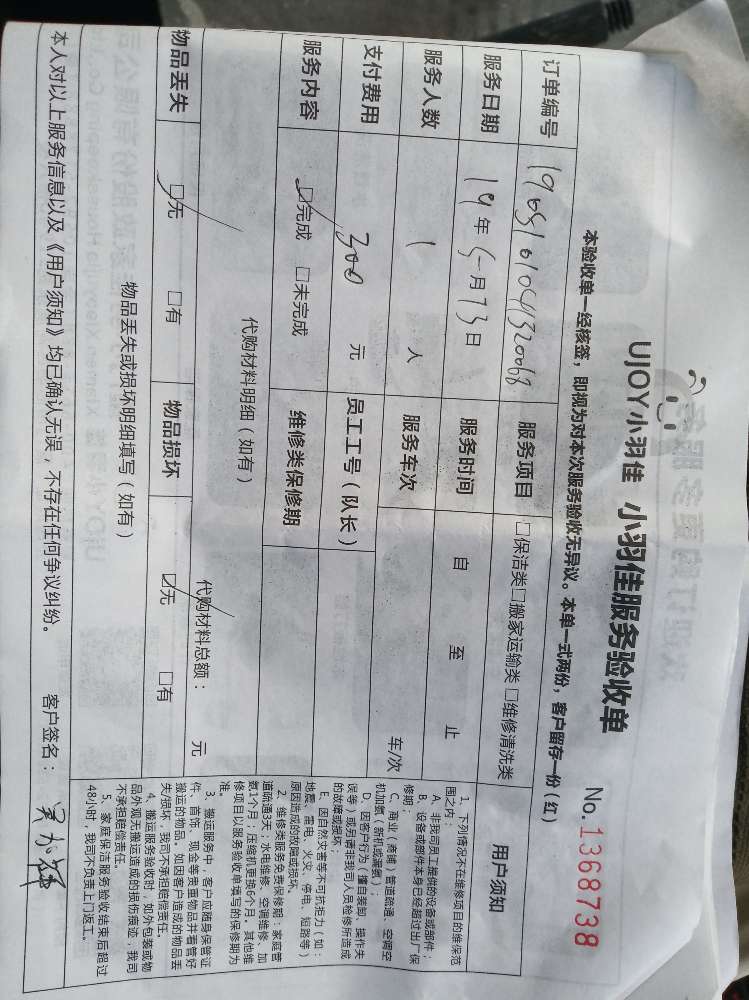 UJOY小羽佳 小羽佳服务验收单
No.1368738
本验收单一经核签，即视为对本次服务验收无异议。本单一式两份，客户留存一份（红）
订单编号 服务项目 □保洁类□搬家运输类□维修清洗类
服务日期 19年5月13日 服务时间 自 至 止
服务人数 1人 服务车次 车/次
支付费用 300元 员工工号（队长）
服务内容 ☑完成 □未完成 维修类保修期
代购材料明细（如有）
代购材料总额： 元
物品丢失 ☑无 □有 物品损坏 ☑无 □有
物品丢失或损坏明细填写（如有）
本人对以上服务信息以及《用户须知》均已确认无误，不存在任何争议纠纷。 客户签名：
用户须知
1、下列情况不在维修项目的维保范
围之内：
A、非我司员工提供的设备或部件；
B、设备或部件本身已经超过出厂保
修期；
C、商业（商铺）管道疏通、空调空
机加氨（新机或漏氨）；
D、因客户行为（擅自装卸、操作失
误等）或另请非我司人员检修所造成
的故障或损坏；
E、因自然灾害等不可抗拒力（如：
地震、雷电、火灾、停电、短路等）
原因造成的故障或损坏。
2、维修类服务免费保修期：家庭管
道疏通3天；水电维修、空调维修、加
氨1个月；压缩机更换6个月。其他维
修项目以服务验收单填写的保修期为
准。
3、搬运服务中，客户应随身保管证
件、首饰、现金等贵重物品并看管好
搬运的物品。如因客户造成的物品丢
失损坏，我司不承担赔偿责任。
4、搬运服务验收时，如外包装或物
品外观无搬运造成的损伤痕迹，我司
不承担赔偿责任。
5、家庭保洁服务验收结束后超过
48小时，我司不负责上门返工。